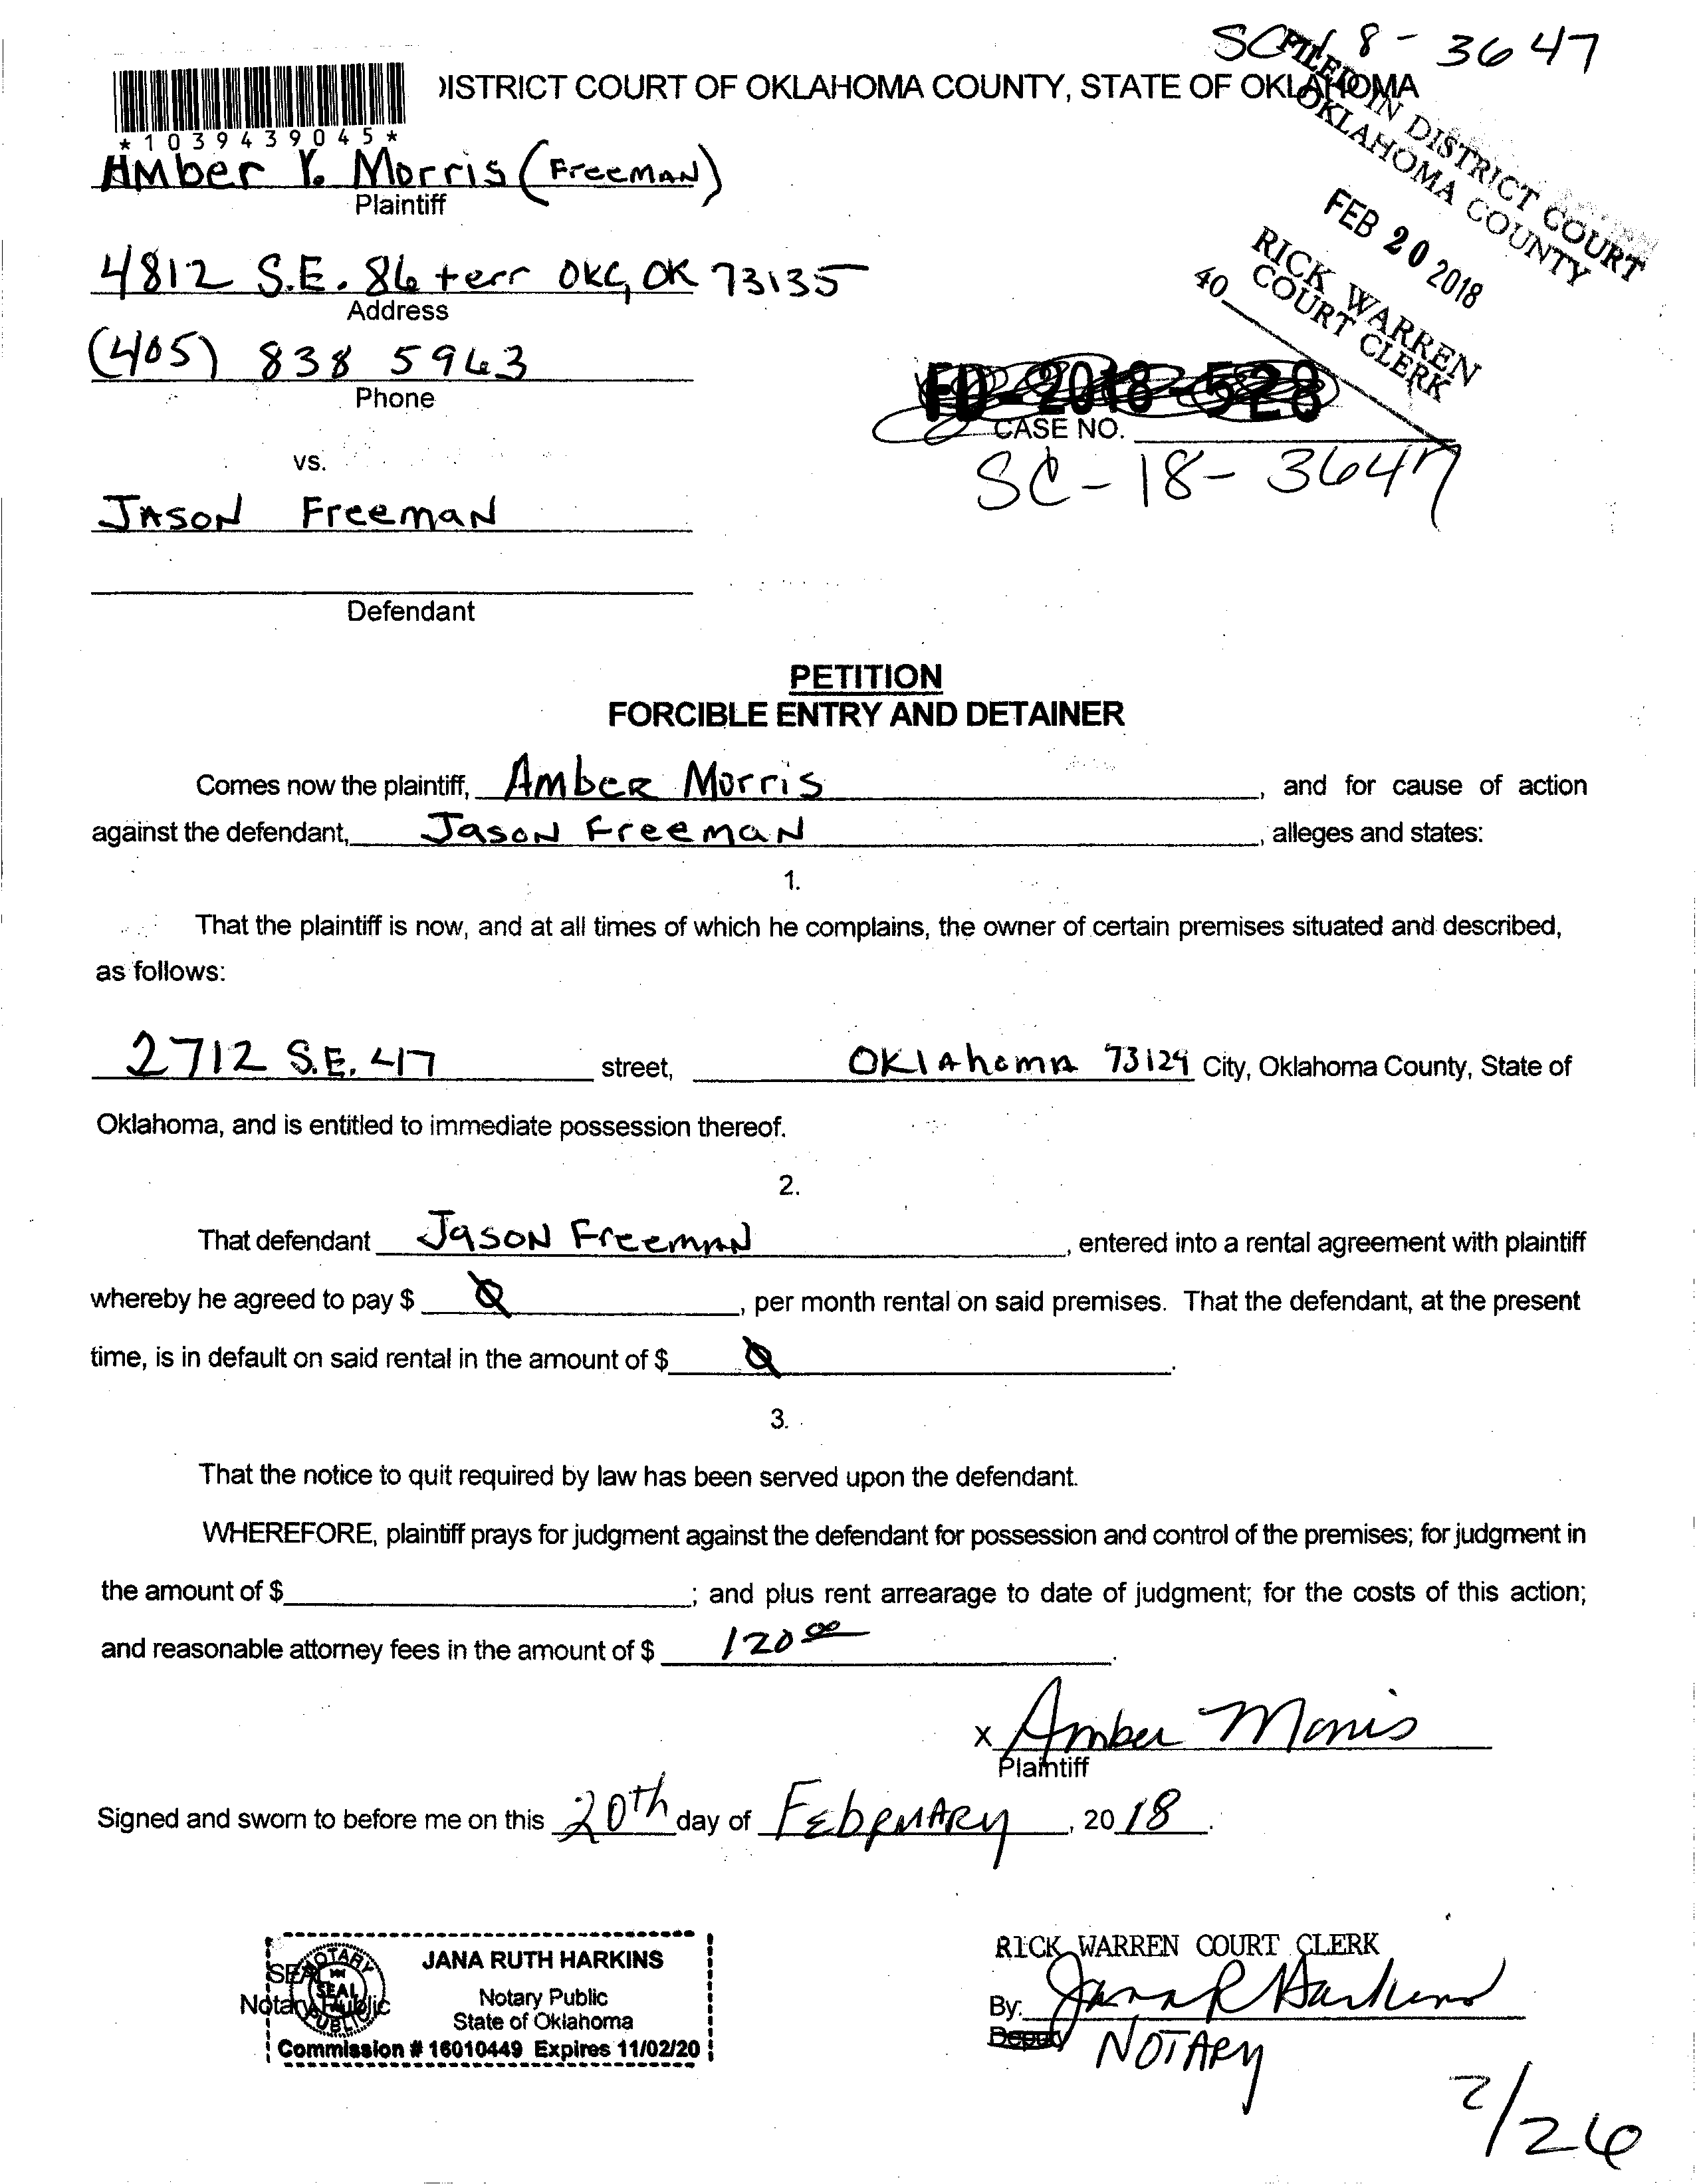 SC-18-3647
DISTRICT COURT OF OKLAHOMA COUNTY, STATE OF OKLAHOMA
*1039439045*
FILED IN DISTRICT COURT
OKLAHOMA COUNTY
FEB 20 2018
RICK WARREN
COURT CLERK
40
AMber Y. Morris (FreemaN)
Plaintiff
4812 S.E. 86 terr OKC, OK 73135
Address
(405) 838 5963
Phone
FD-2018-528
CASE NO.
SC-18-3647
vs.
JASON FreemaN
Defendant
PETITION
FORCIBLE ENTRY AND DETAINER
Comes now the plaintiff, Amber Morris, and for cause of action
against the defendant, Jason Freeman, alleges and states:
1.
That the plaintiff is now, and at all times of which he complains, the owner of certain premises situated and described,
as follows:
2712 S.E. 47 street, Oklahoma 73129 City, Oklahoma County, State of
Oklahoma, and is entitled to immediate possession thereof.
2.
That defendant Jason Freeman, entered into a rental agreement with plaintiff
whereby he agreed to pay $ Ø, per month rental on said premises. That the defendant, at the present
time, is in default on said rental in the amount of $ Ø.
3.
That the notice to quit required by law has been served upon the defendant.
WHEREFORE, plaintiff prays for judgment against the defendant for possession and control of the premises; for judgment in
the amount of $ ; and plus rent arrearage to date of judgment; for the costs of this action;
and reasonable attorney fees in the amount of $ 120 00.
X Amber Morris
Plaintiff
Signed and sworn to before me on this 20th day of February, 2018.
SEAL
Notary Public
NOTARY PUBLIC SEAL
JANA RUTH HARKINS
Notary Public
State of Oklahoma
Commission # 16010449 Expires 11/02/20
RICK WARREN COURT CLERK
By: Jana R Harkins
Deputy
NOTARY
2/26